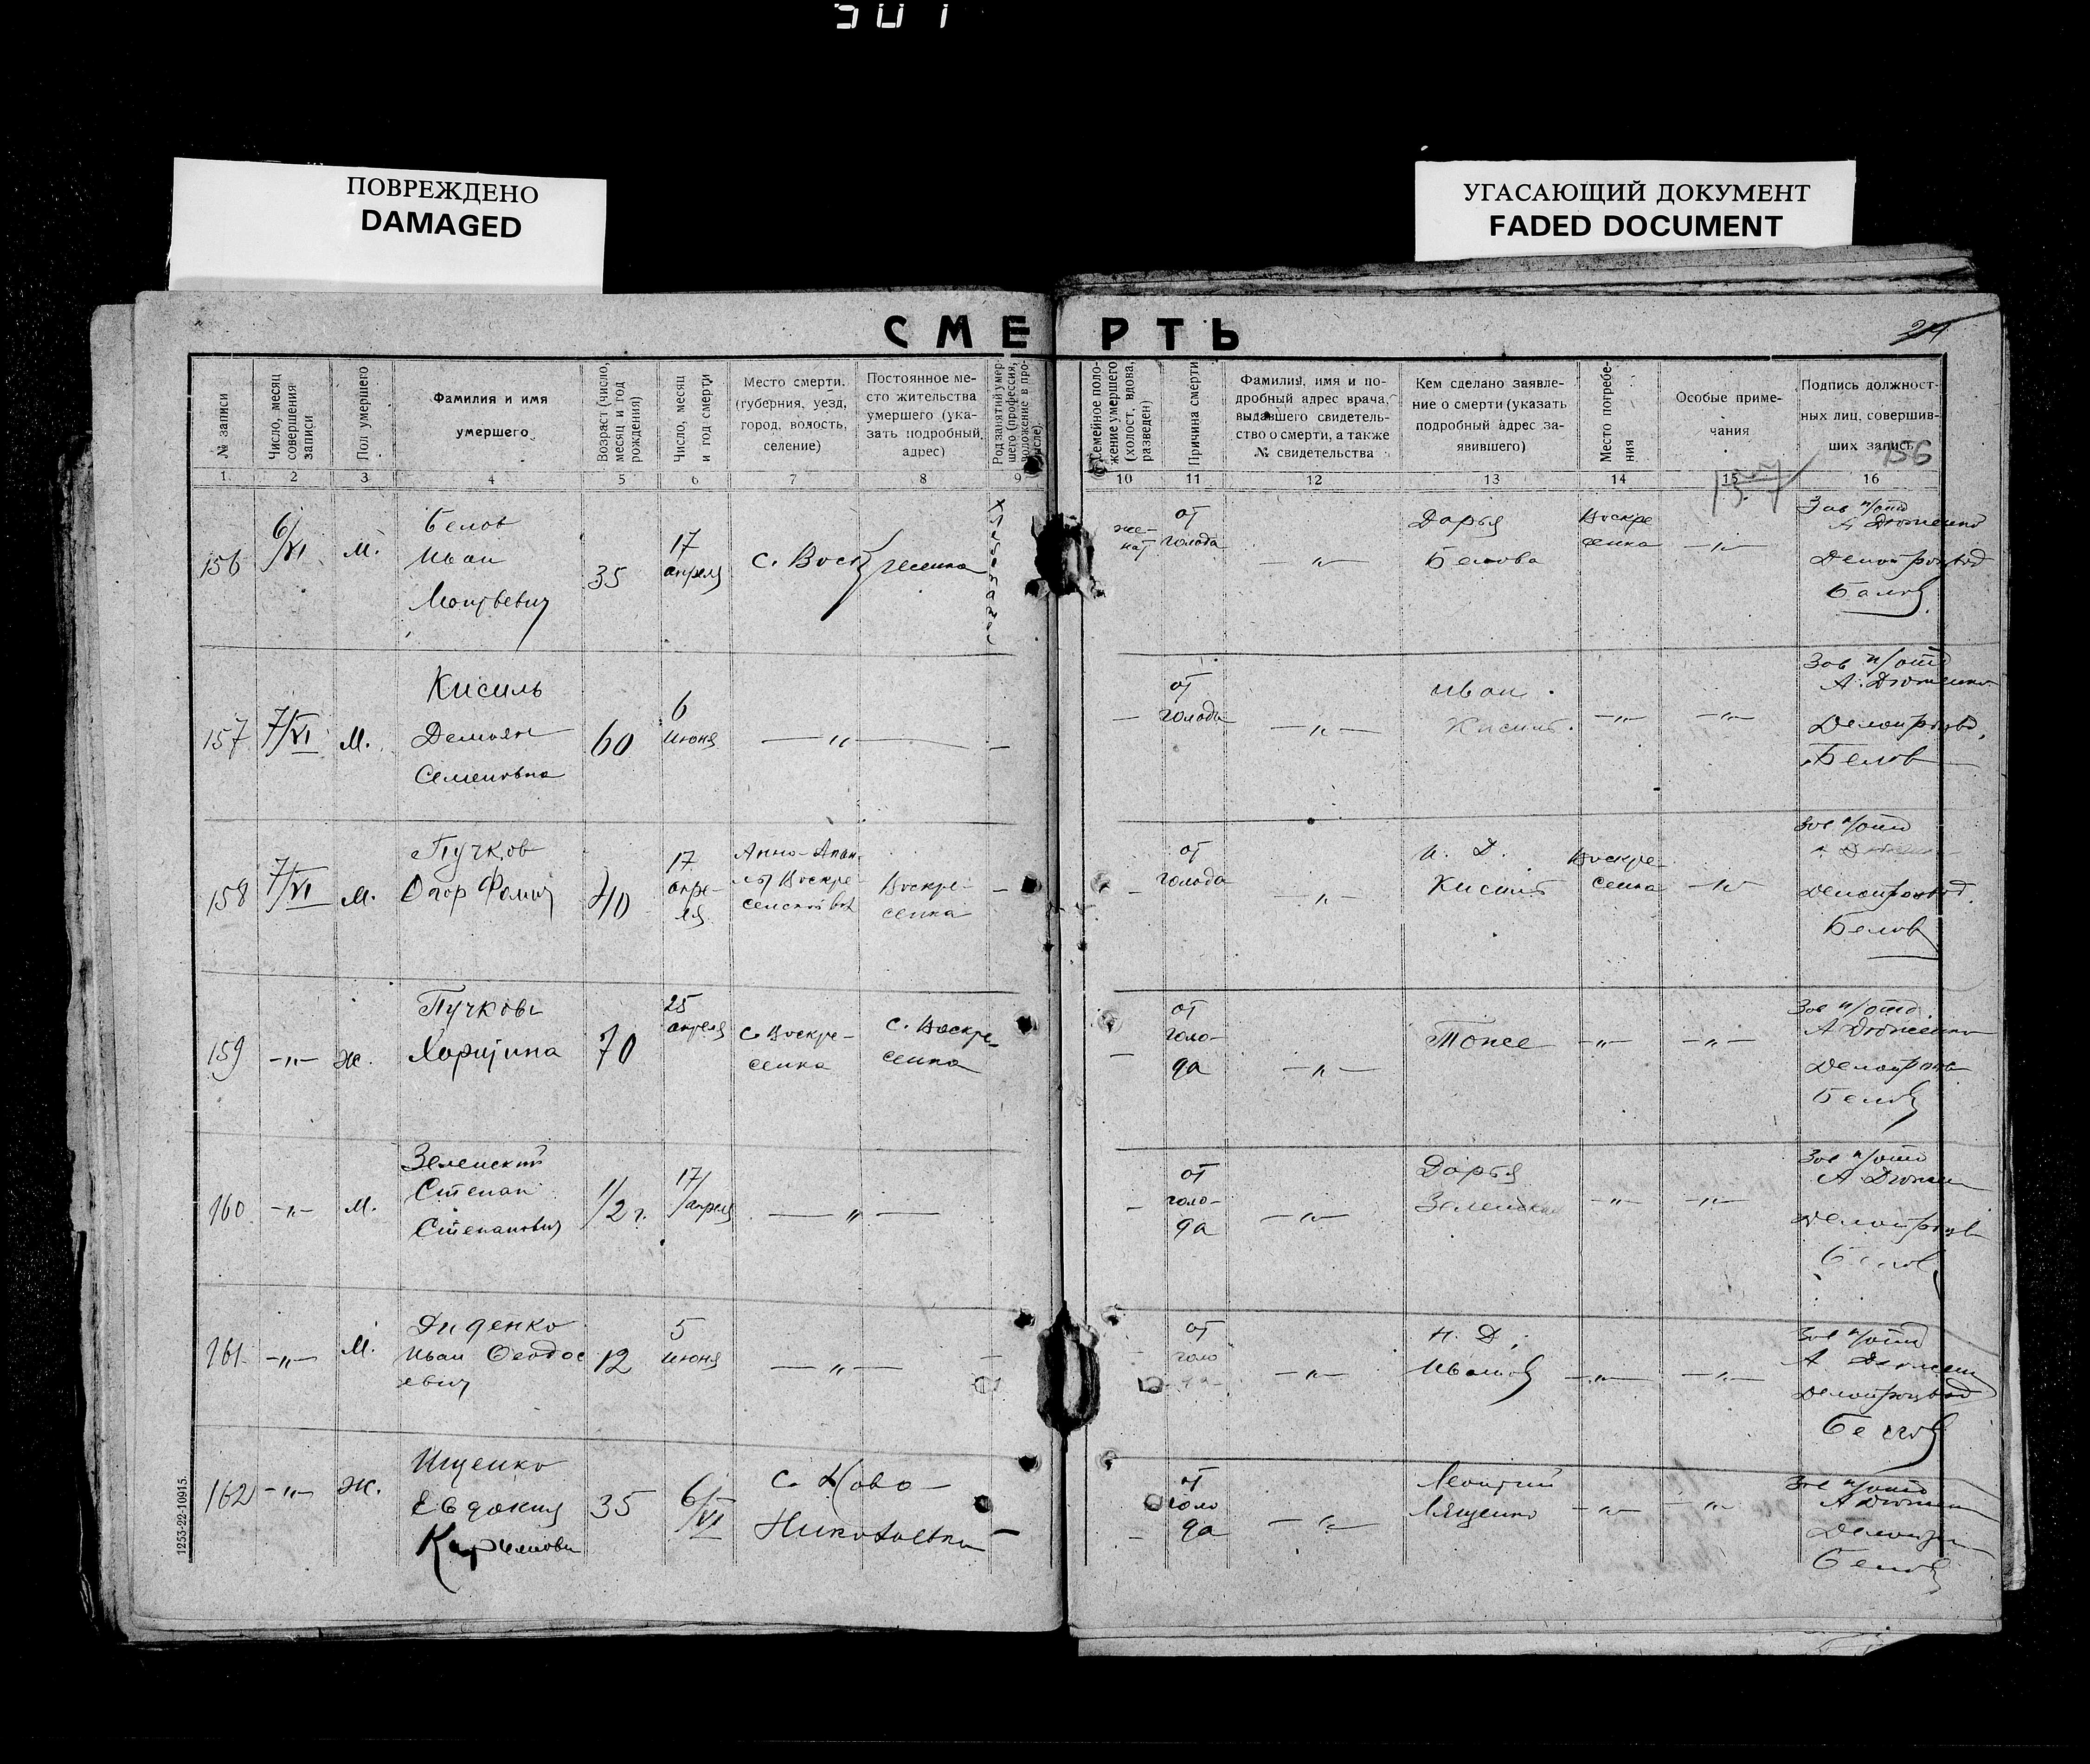 501
ПОВРЕЖДЕНО
DAMAGED
УГАСАЮЩИЙ ДОКУМЕНТ
FADED DOCUMENT
СМЕРТЬ
24
№ записи
Число, месяц совершения записи
Пол умершего
Фамилия и имя
умершего
Возраст (число, месяц и год рождения)
Число, месяц и год смерти
Место смерти. (губерния, уезд, город, волость, селение)
Постоянное место жительства умершего (указать подробный адрес)
Род занятий умершего (профессия, положение в промысле).
Семейное положение умершего (холост, вдова, разведен)
Причина смерти
Фамилия, имя и подробный адрес врача, выдавшего свидетельство о смерти, а также № свидетельства
Кем сделано заявление о смерти (указать подробный адрес заявившего)
Место погребения
Особые примечания
Подпись должностных лиц, совершивших запись
156
1 2 3 4 5 6 7 8 9 10 11 12 13 14 15 16
157
156 6/VI м. Белов
Иван
35 17
апреля
с. Воскресенка
Хлебороб
женат
от
голода
—"—
Дарья
Белова
Воскре
сенка
—"—
Зав п/отд
Делопроизвод
Белов
157 7/VI м. Кисиль
Демьян
Семеновна
60 6
июня
—"—
—
—
от
голода
—"—
Иван
Кисиль
—"—
—"—
Зав п/отд
Делопроизвод.
Белов
158 7/VI м. Пучков
Фомич
40 17
апре-
ля
Воскре-
сенка
—
—
от
голода
—"—
И. Д.
Кисиль
Воскре-
сенка
—"—
Зав п/отд
Делопроизвод.
Белов
159 —"— ж. Пучкова
Харитина
70 25
апреля
с. Воскре-
сенка
с. Воскре-
сенка
—
от
голо-
да
—"—
Тоже
—"—
—"—
Зав п/отд.
Белов
160 —"— м. Зеленский
Степан
Степанович
1/2 г. 17/
апреля
—"—
—
от
голо-
да
—"—
Дарья
—"—
—"—
Зав п/отд
Белов
161 —"— м. Диденко
Иван Феодос
евич
12 5
июня
—"—
—
от
голо
да
—"—
Н. Д.
Иванов
—"—
—"—
Зав п/отд
Делопроизвод
Белов
162 —"— ж. Ищенко
Евдокия
35 6/VI
с. Ново-
Николаевка
—
—
от
голо
да
—"—
Леонтий
Ищенко
—"—
—"—
Зав п/отд
Белов
1253-22-10915.